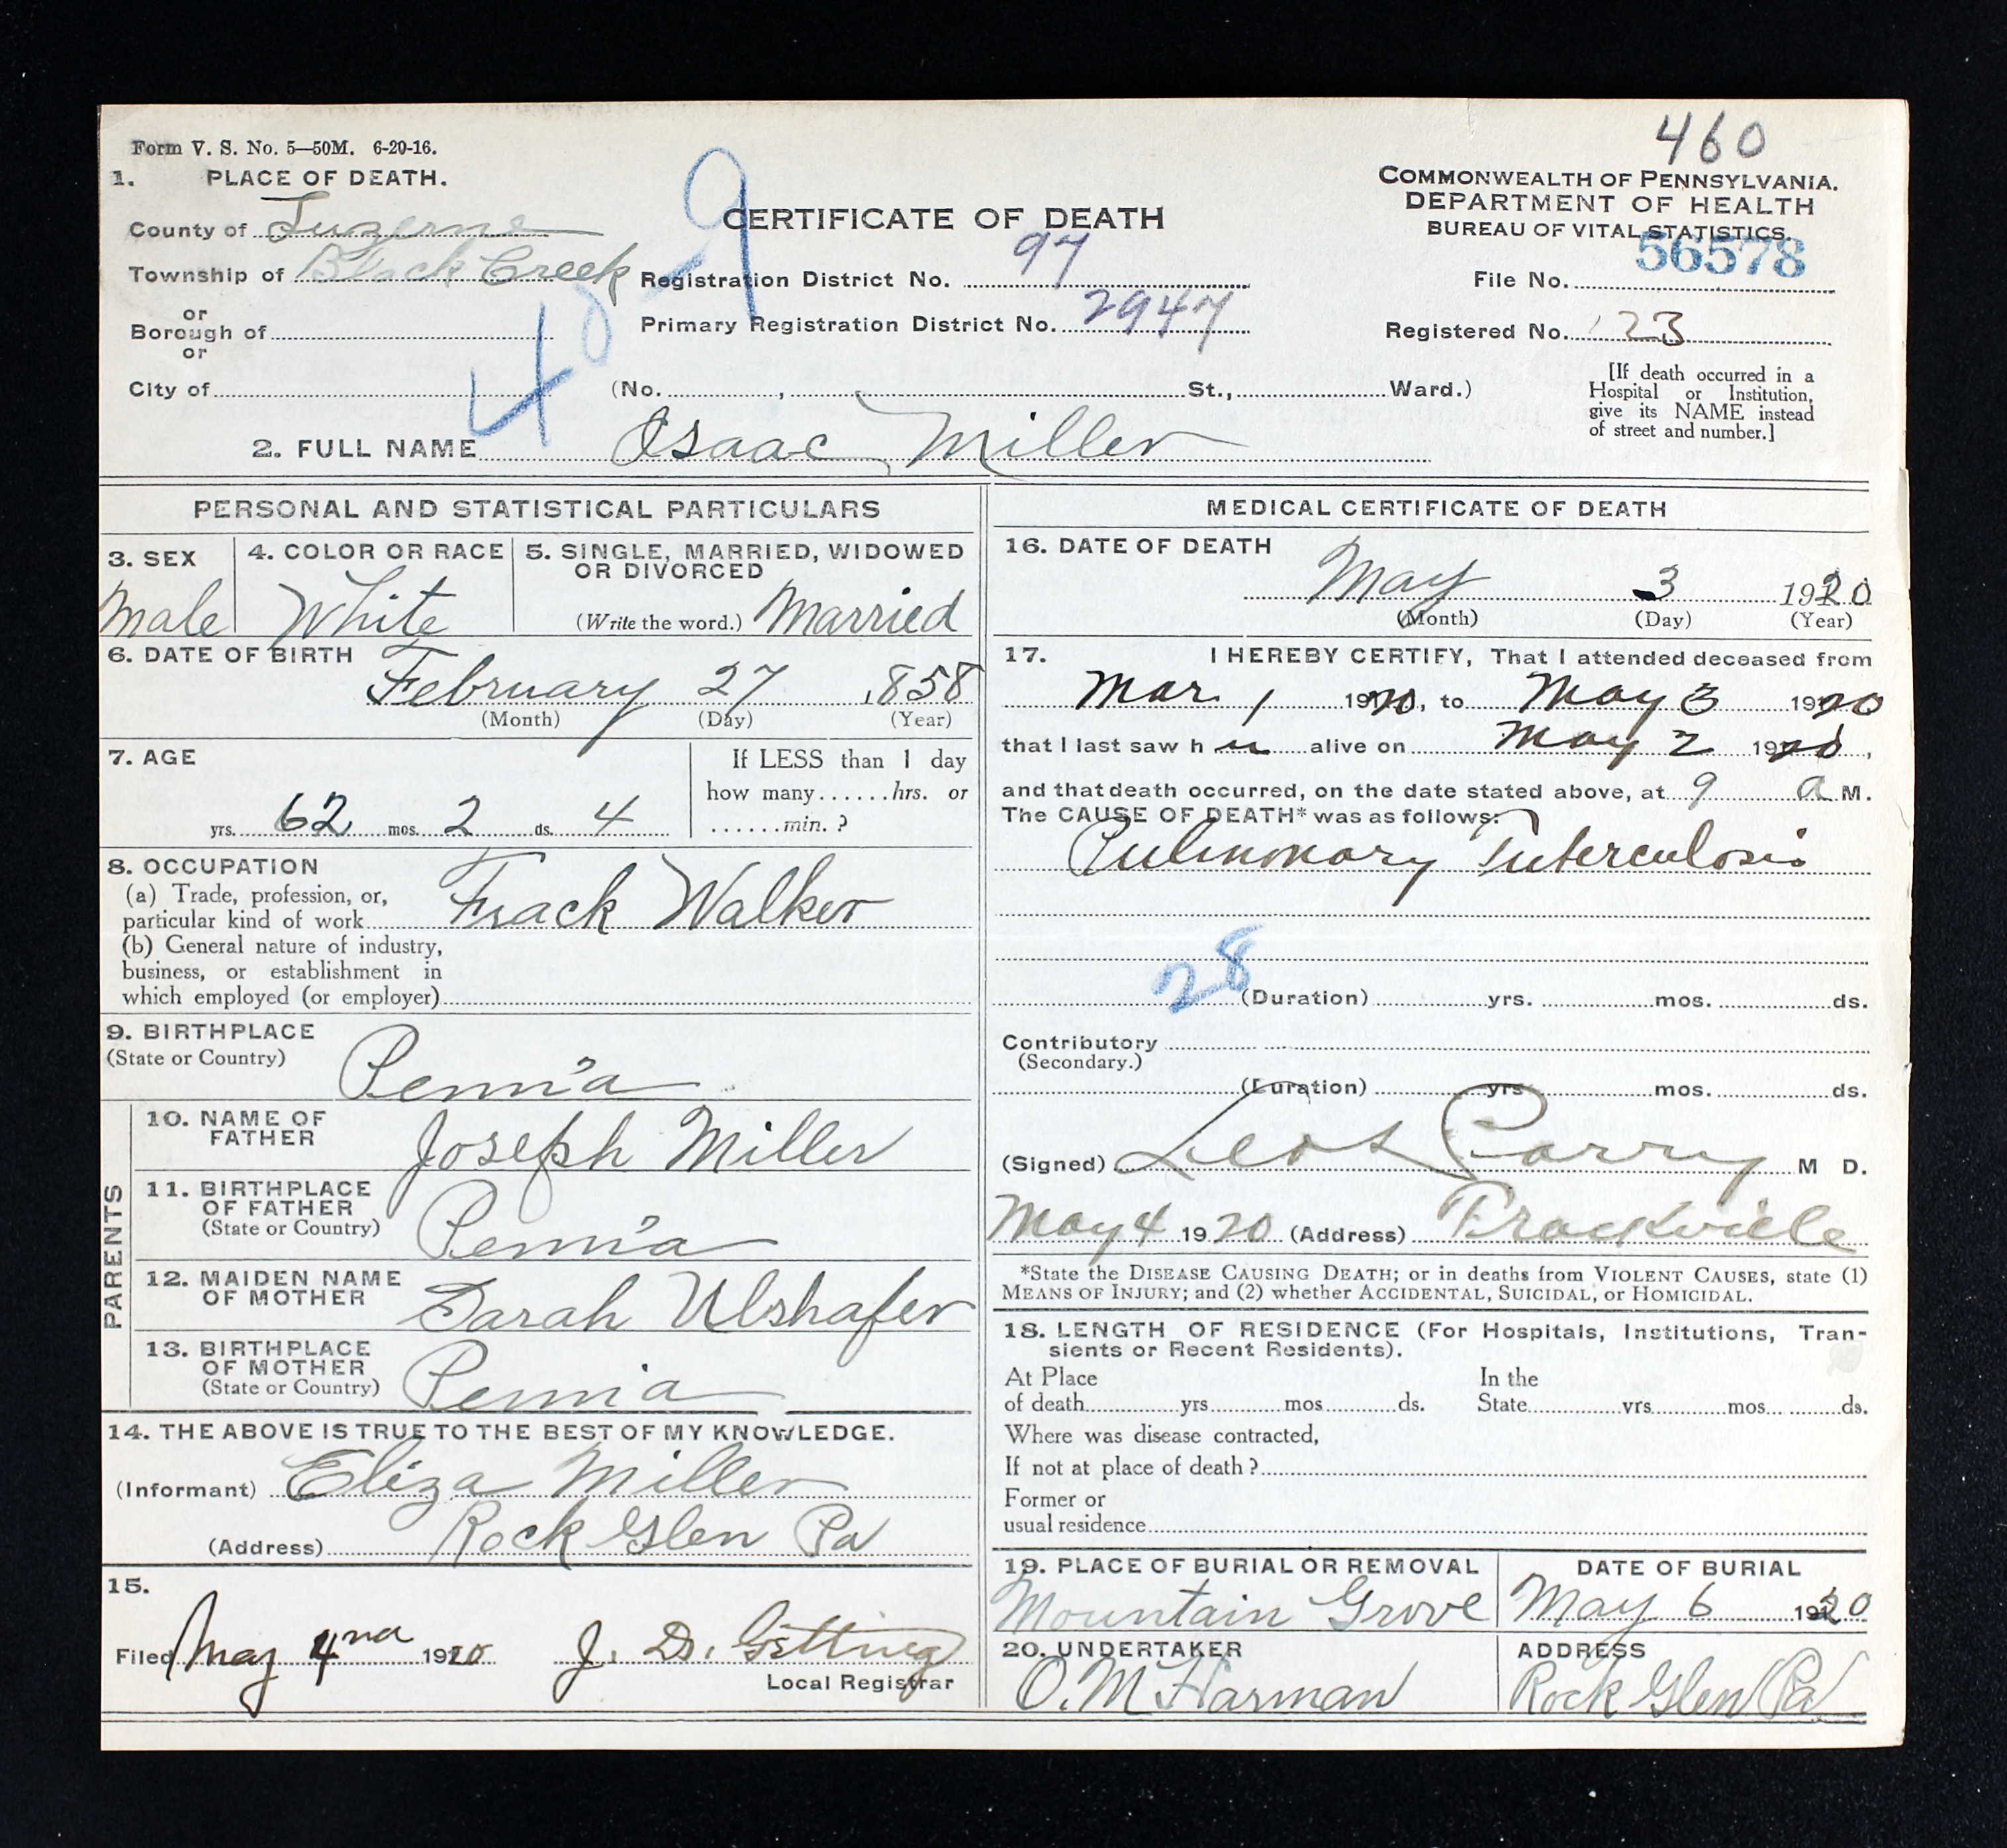 460
Form V. S. No. 5—50M. 6-20-16.
1. PLACE OF DEATH.
County of Luzerne
Township of Black Creek
or
Borough of
or
City of
CERTIFICATE OF DEATH
Registration District No. 97
Primary Registration District No. 2947
(No. , St., Ward.)
COMMONWEALTH OF PENNSYLVANIA.
DEPARTMENT OF HEALTH
BUREAU OF VITAL STATISTICS.
File No. 56578
Registered No. 23
[If death occurred in a
Hospital or Institution,
give its NAME instead
of street and number.]
2. FULL NAME Isaac Miller
PERSONAL AND STATISTICAL PARTICULARS
3. SEX
Male
4. COLOR OR RACE
White
5. SINGLE, MARRIED, WIDOWED
OR DIVORCED
(Write the word.) Married
6. DATE OF BIRTH
February 27 1858
(Month) (Day) (Year)
7. AGE
yrs. 62 mos. 2 ds. 4
If LESS than 1 day
how many......hrs. or
......min.?
8. OCCUPATION
(a) Trade, profession, or,
particular kind of work Frack Walker
(b) General nature of industry,
business, or establishment in
which employed (or employer)
9. BIRTHPLACE
(State or Country) Penn'a
PARENTS
10. NAME OF
FATHER Joseph Miller
11. BIRTHPLACE
OF FATHER
(State or Country) Penn'a
12. MAIDEN NAME
OF MOTHER Sarah Ulshafer
13. BIRTHPLACE
OF MOTHER
(State or Country) Penn'a
14. THE ABOVE IS TRUE TO THE BEST OF MY KNOWLEDGE.
(Informant) Eliza Miller
(Address) Rock Glen Pa
15.
Filed May 4 1920 J. D.
Local Registrar
MEDICAL CERTIFICATE OF DEATH
16. DATE OF DEATH
May 3 1920
(Month) (Day) (Year)
17. I HEREBY CERTIFY, That I attended deceased from
Mar. 1 1920, to May 3 1920
that I last saw h im alive on May 2 1920,
and that death occurred, on the date stated above, at 9 a M.
The CAUSE OF DEATH* was as follows:
Pulmonary Tuberculosis
28
(Duration) yrs. mos. ds.
Contributory
(Secondary.)
(Duration) yrs mos. ds.
(Signed) Parry M D.
May 4 1920 (Address) Frackville
*State the DISEASE CAUSING DEATH; or in deaths from VIOLENT CAUSES, state (1)
MEANS OF INJURY; and (2) whether ACCIDENTAL, SUICIDAL, or HOMICIDAL.
18. LENGTH OF RESIDENCE (For Hospitals, Institutions, Tran-
sients or Recent Residents).
At Place In the
of death yrs mos ds. State yrs mos ds.
Where was disease contracted,
If not at place of death?
Former or
usual residence
19. PLACE OF BURIAL OR REMOVAL
Mountain Grove
DATE OF BURIAL
May 6 1920
20. UNDERTAKER
O. M Harman
ADDRESS
Rock Glen Pa